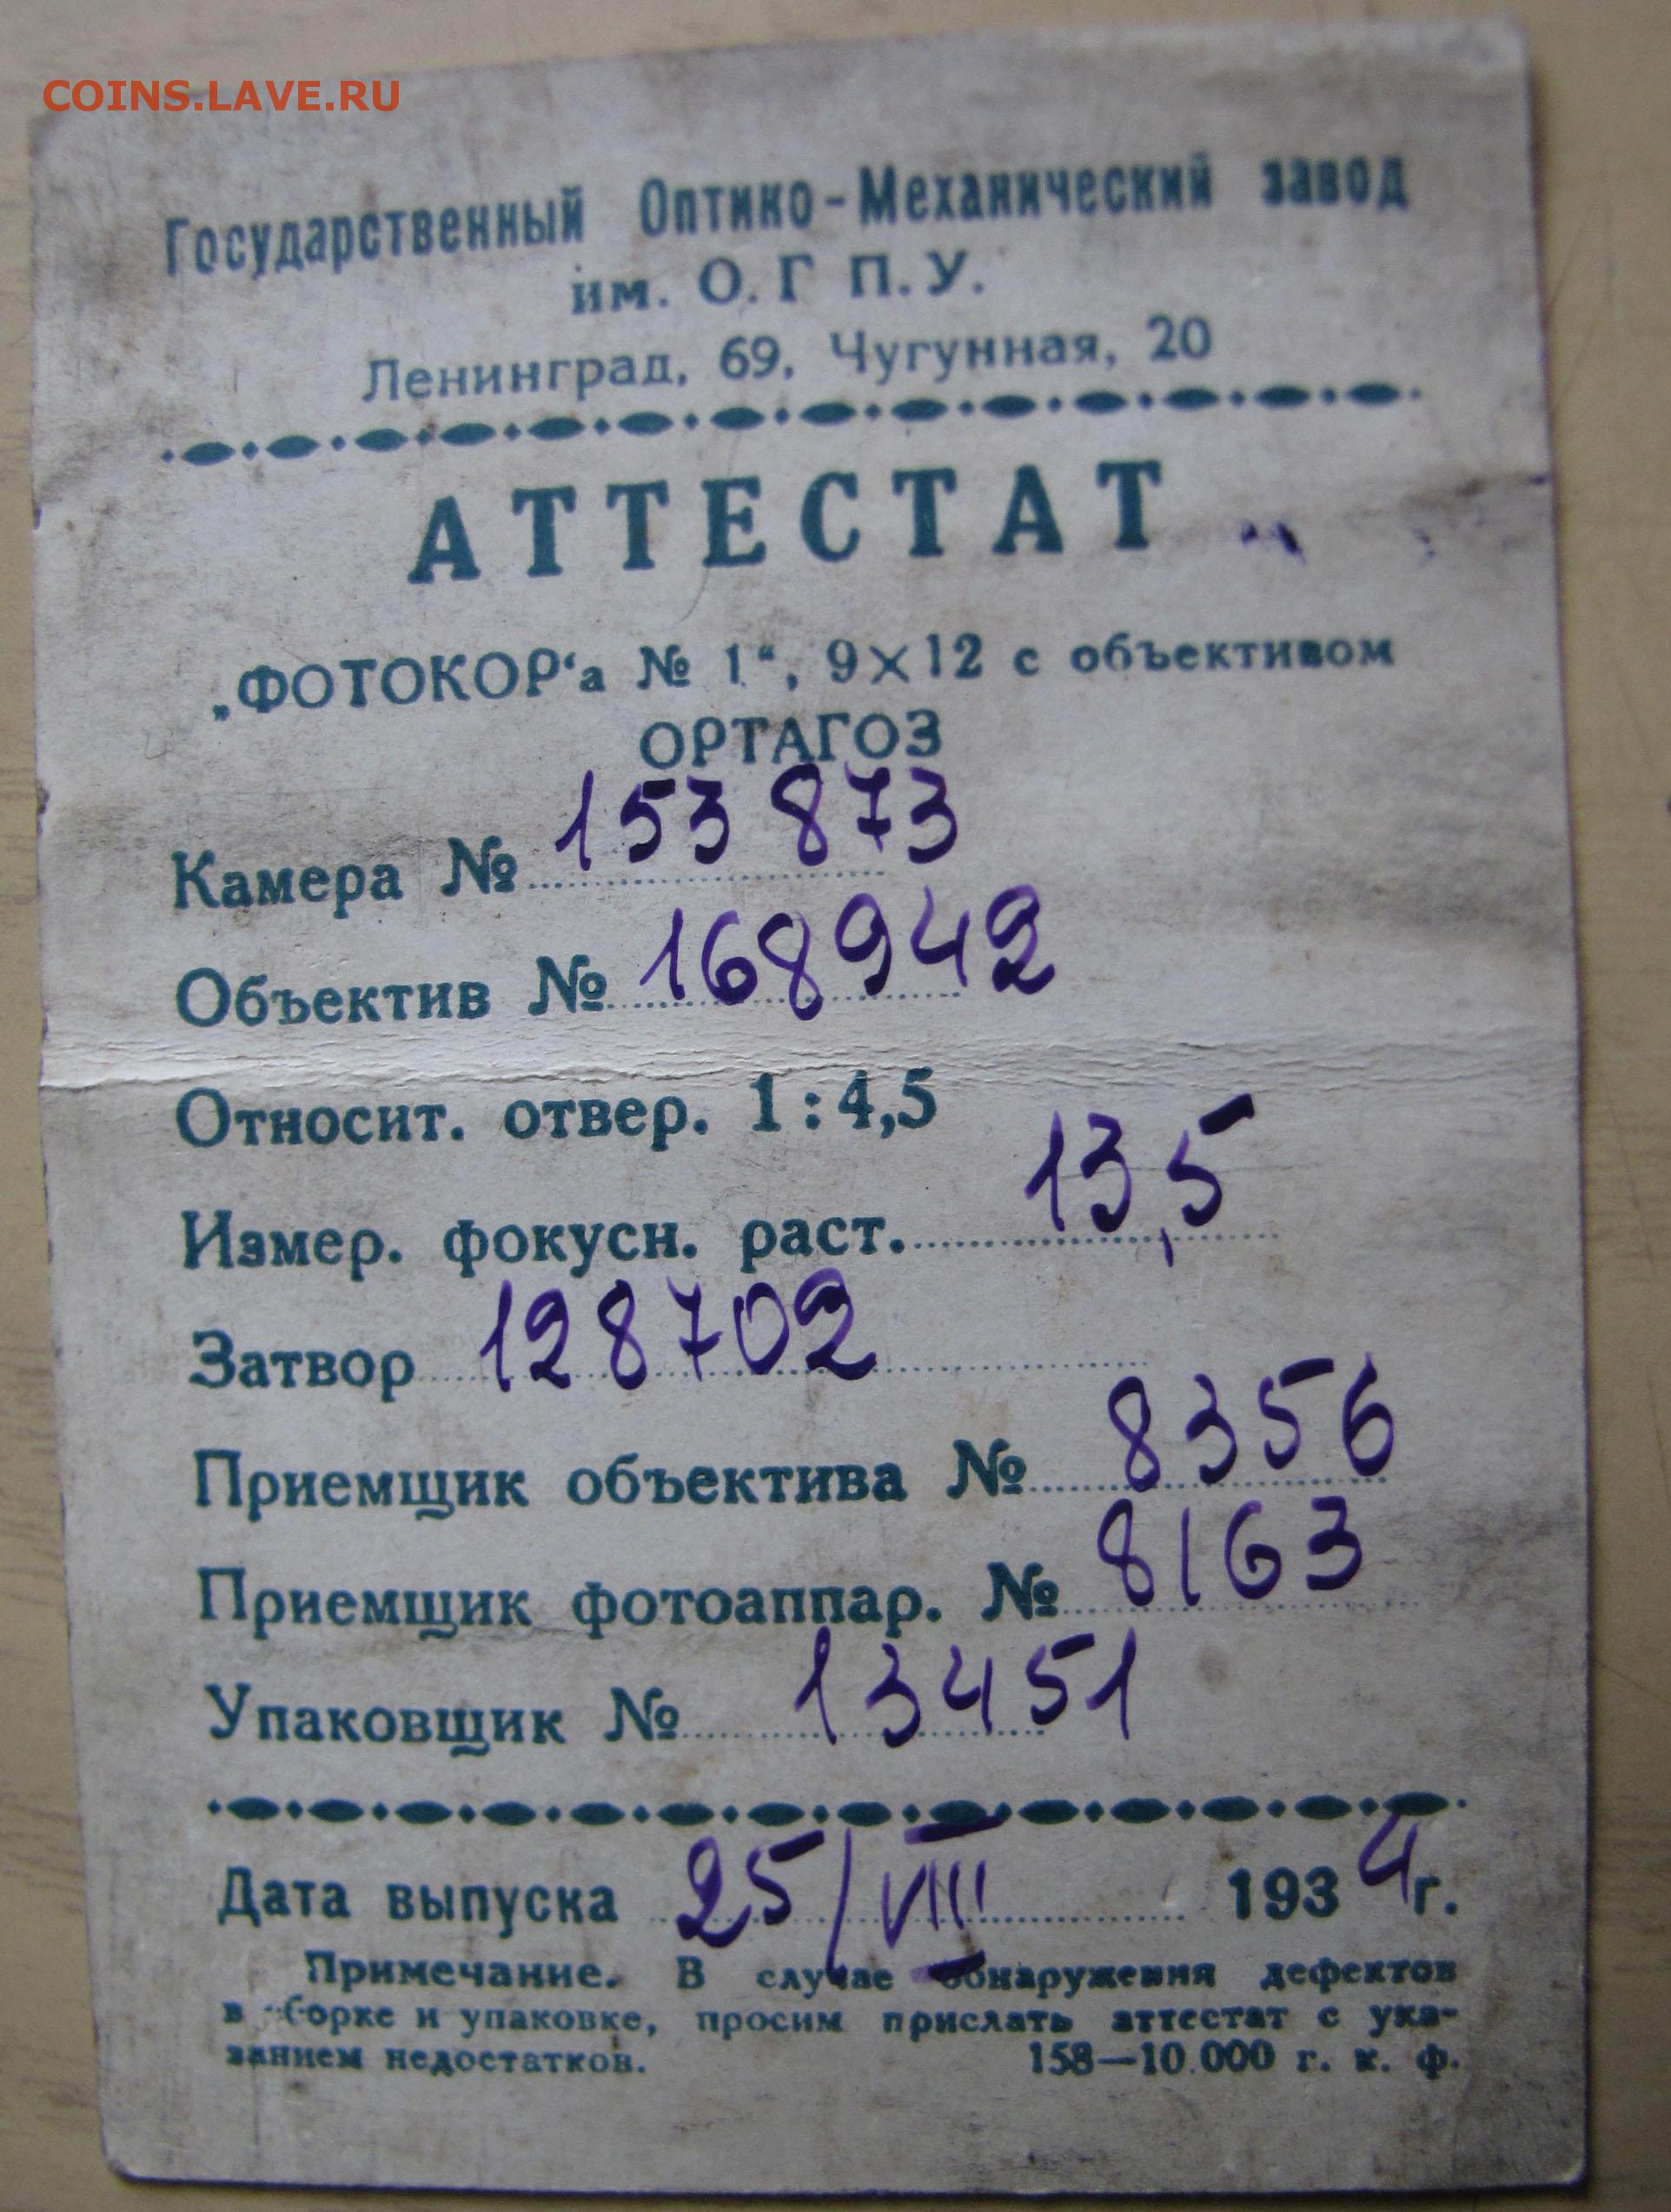 COINS.LAVE.RU
Государственный Оптико-Механический завод
им. О.Г П.У.
Ленинград, 69, Чугунная, 20
АТТЕСТАТ
„ФОТОКОР‘а № 1“, 9×12 с объективом
ОРТАГОЗ
Камера № 153873
Объектив № 168942
Относит. отвер. 1:4,5
Измер. фокусн. раст. 13,5
Затвор 128702
Приемщик объектива № 8356
Приемщик фотоаппар. № 8163
Упаковщик № 13451
Дата выпуска 25/VIII 1934г.
Примечание. В случае обнаружения дефектов
в сборке и упаковке, просим прислать аттестат с ука-
занием недостатков. 158—10.000 г. к. ф.